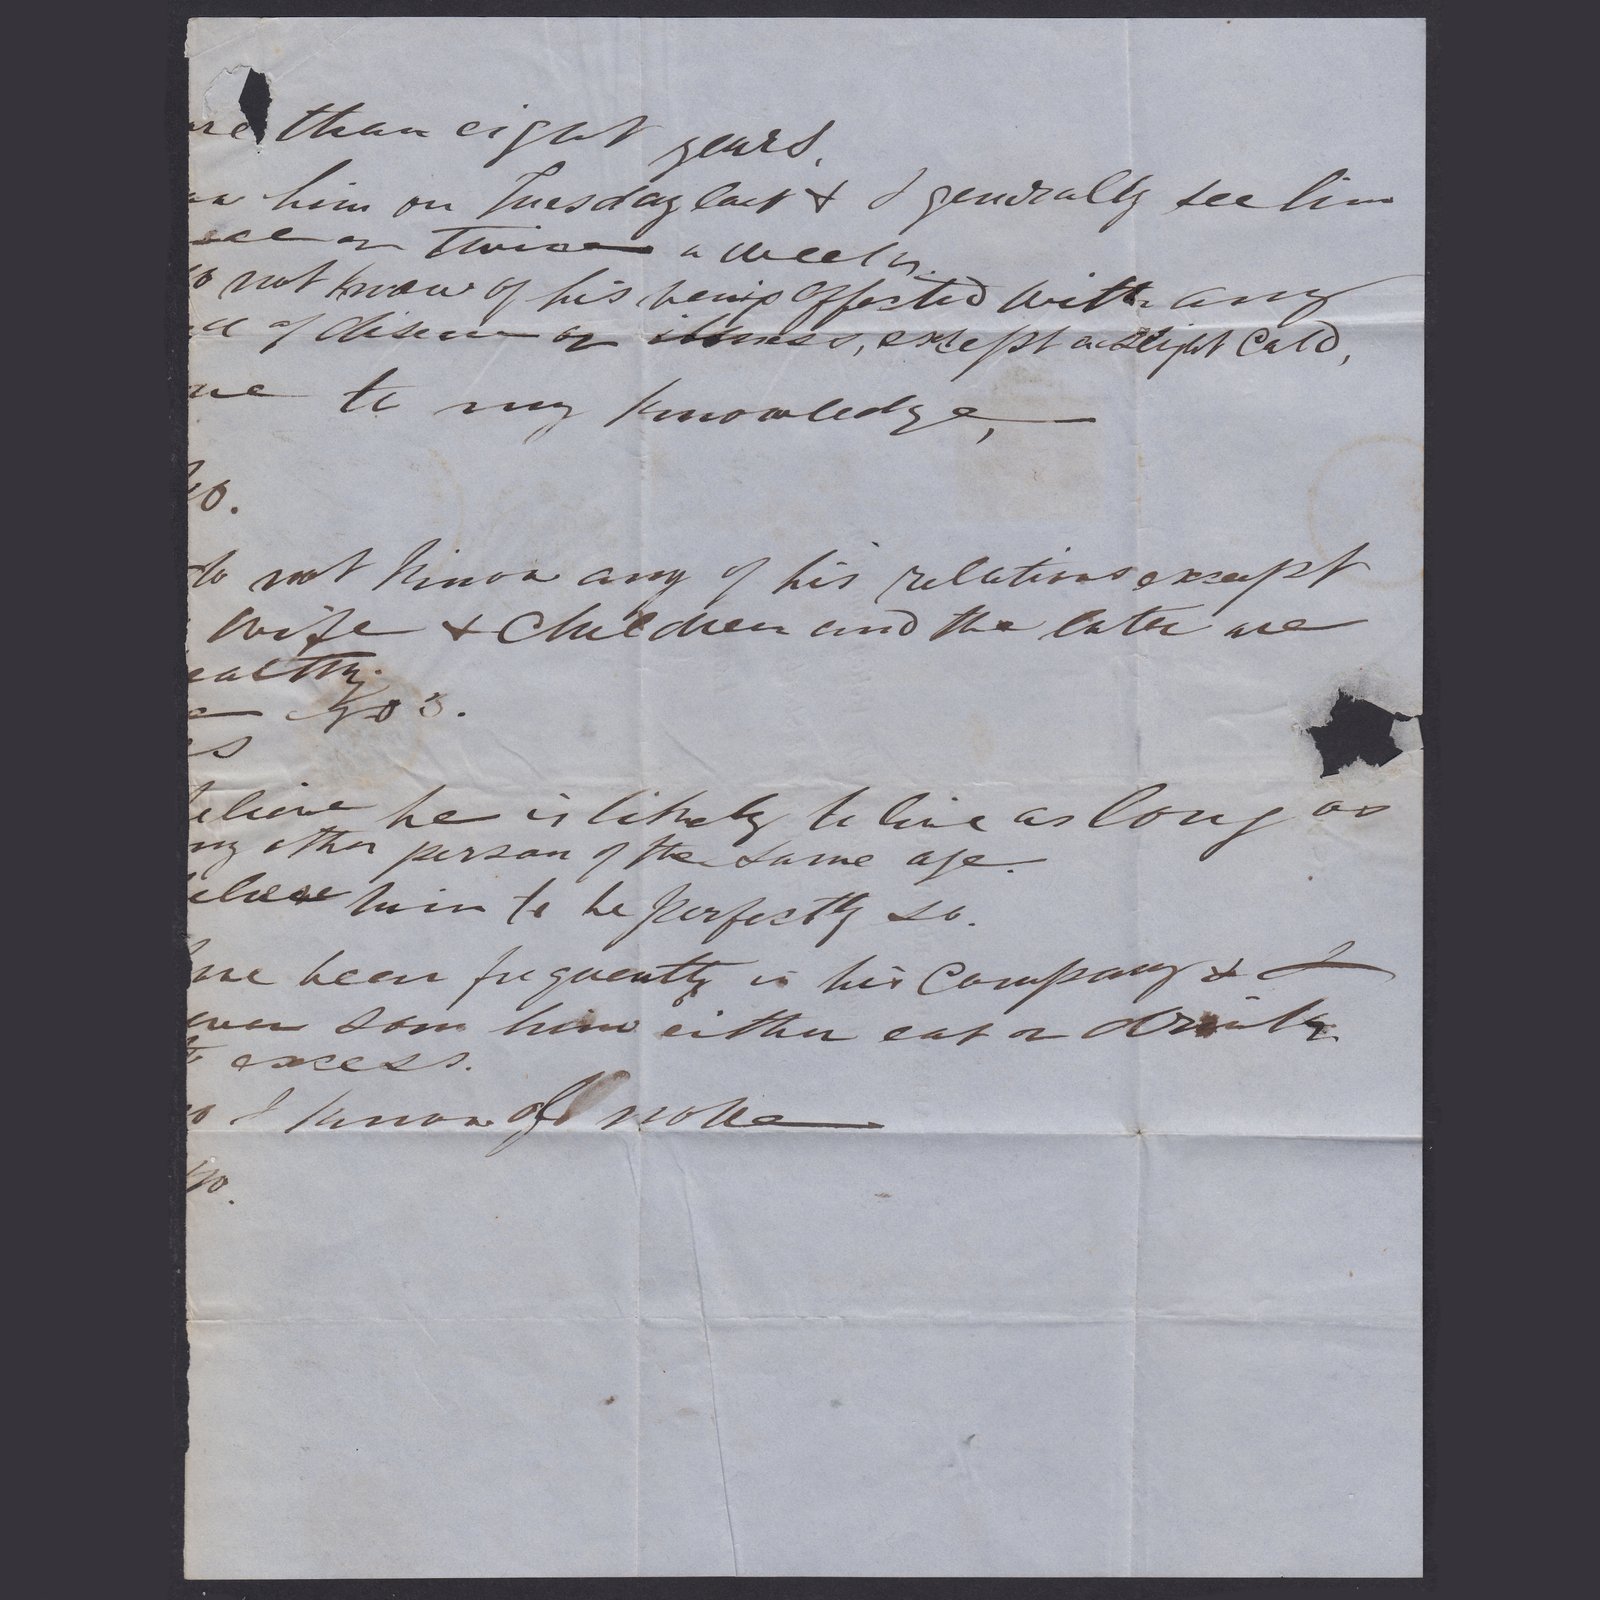 re than eight years.
aw him on Tuesday last & I generally see him
nce or twice a week.
do not know of his being affected with any
of disease or illness, except a slight cold,
ne to my knowledge,
No.
do not know any of his relations except
wife & children and the later are
ealthy.
es
elieve he is likely to live as long as
ny other person of the same age.
elieve him to be perfectly so.
have been frequently in his company & I
ever saw him either eat or drink
to excess.
no I know of none
No.